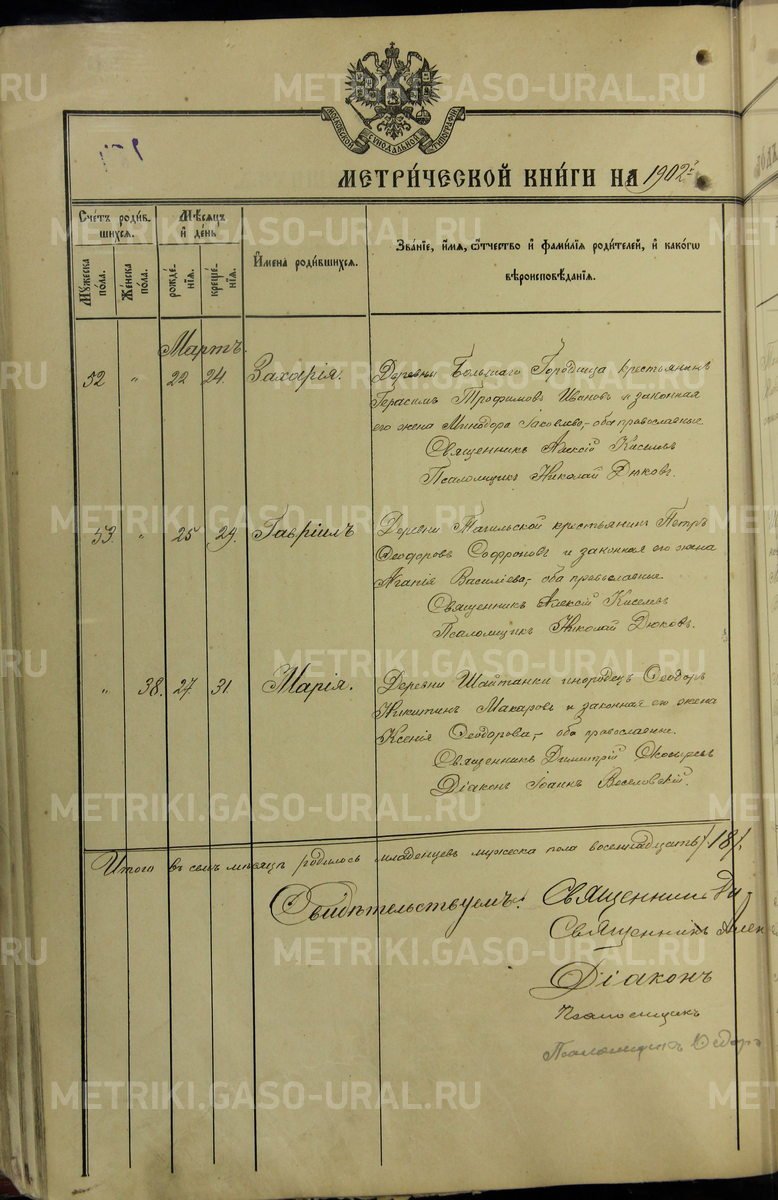 МОСКОВСКОЙ СѴНОДАЛЬНОЙ ТИПОГРАФІИ
МЕТРИ́ЧЕСКОЙ КНИ́ГИ НА 1902 г.
Сче́тъ роди́вшихся.
Мѣ́сяцъ и҆ де́нь
Мꙋ́жеска по́ла.
Же́нска по́ла.
рожде́нїѧ.
креще́нїѧ.
И҆мена̀ роди́вшихся.
Зва́нїе, и҆́мя, ѻ҆́тчество и҆ фами́лїя роди́телей, и҆ како́гѡ
вѣроисповѣ́данїя.
Мартъ.
52 " 22 24. Захарія.
Деревни Большаго Городища крестьянинъ
Герасимъ Трофимовъ Ивановъ и законная
его жена Минодора Іаковлева,- оба православные.
Священникъ Алексій Киселевъ
Псаломщикъ Николай Дюковъ.
53. " 25 29. Гавріилъ
Деревни Тагильской крестьянинъ Петръ
Ѳеодоровъ Софроновъ и законная его жена
Агапія Василіева,- оба православные.
Священникъ Алексій Киселевъ
Псаломщикъ Николай Дюковъ.
" 38. 27 31 Марія.
Деревни Шайтанки инородецъ Ѳеодоръ
Никитинъ Макаровъ и законная его жена
Ксенія Ѳеодорова,- оба православные.
Священникъ Димитрій
Діаконъ Іоаннъ Веселовскій.
Итого въ семъ мѣсяцѣ родилось младенцевъ мужеска пола восемнадцать /18/.
Свидѣтельствуемъ: Священникъ Ди-
Священникъ Алек
Діаконъ
Псаломщикъ
Псаломщикъ Ѳедоръ
METRIKI.GASO-URAL.RU